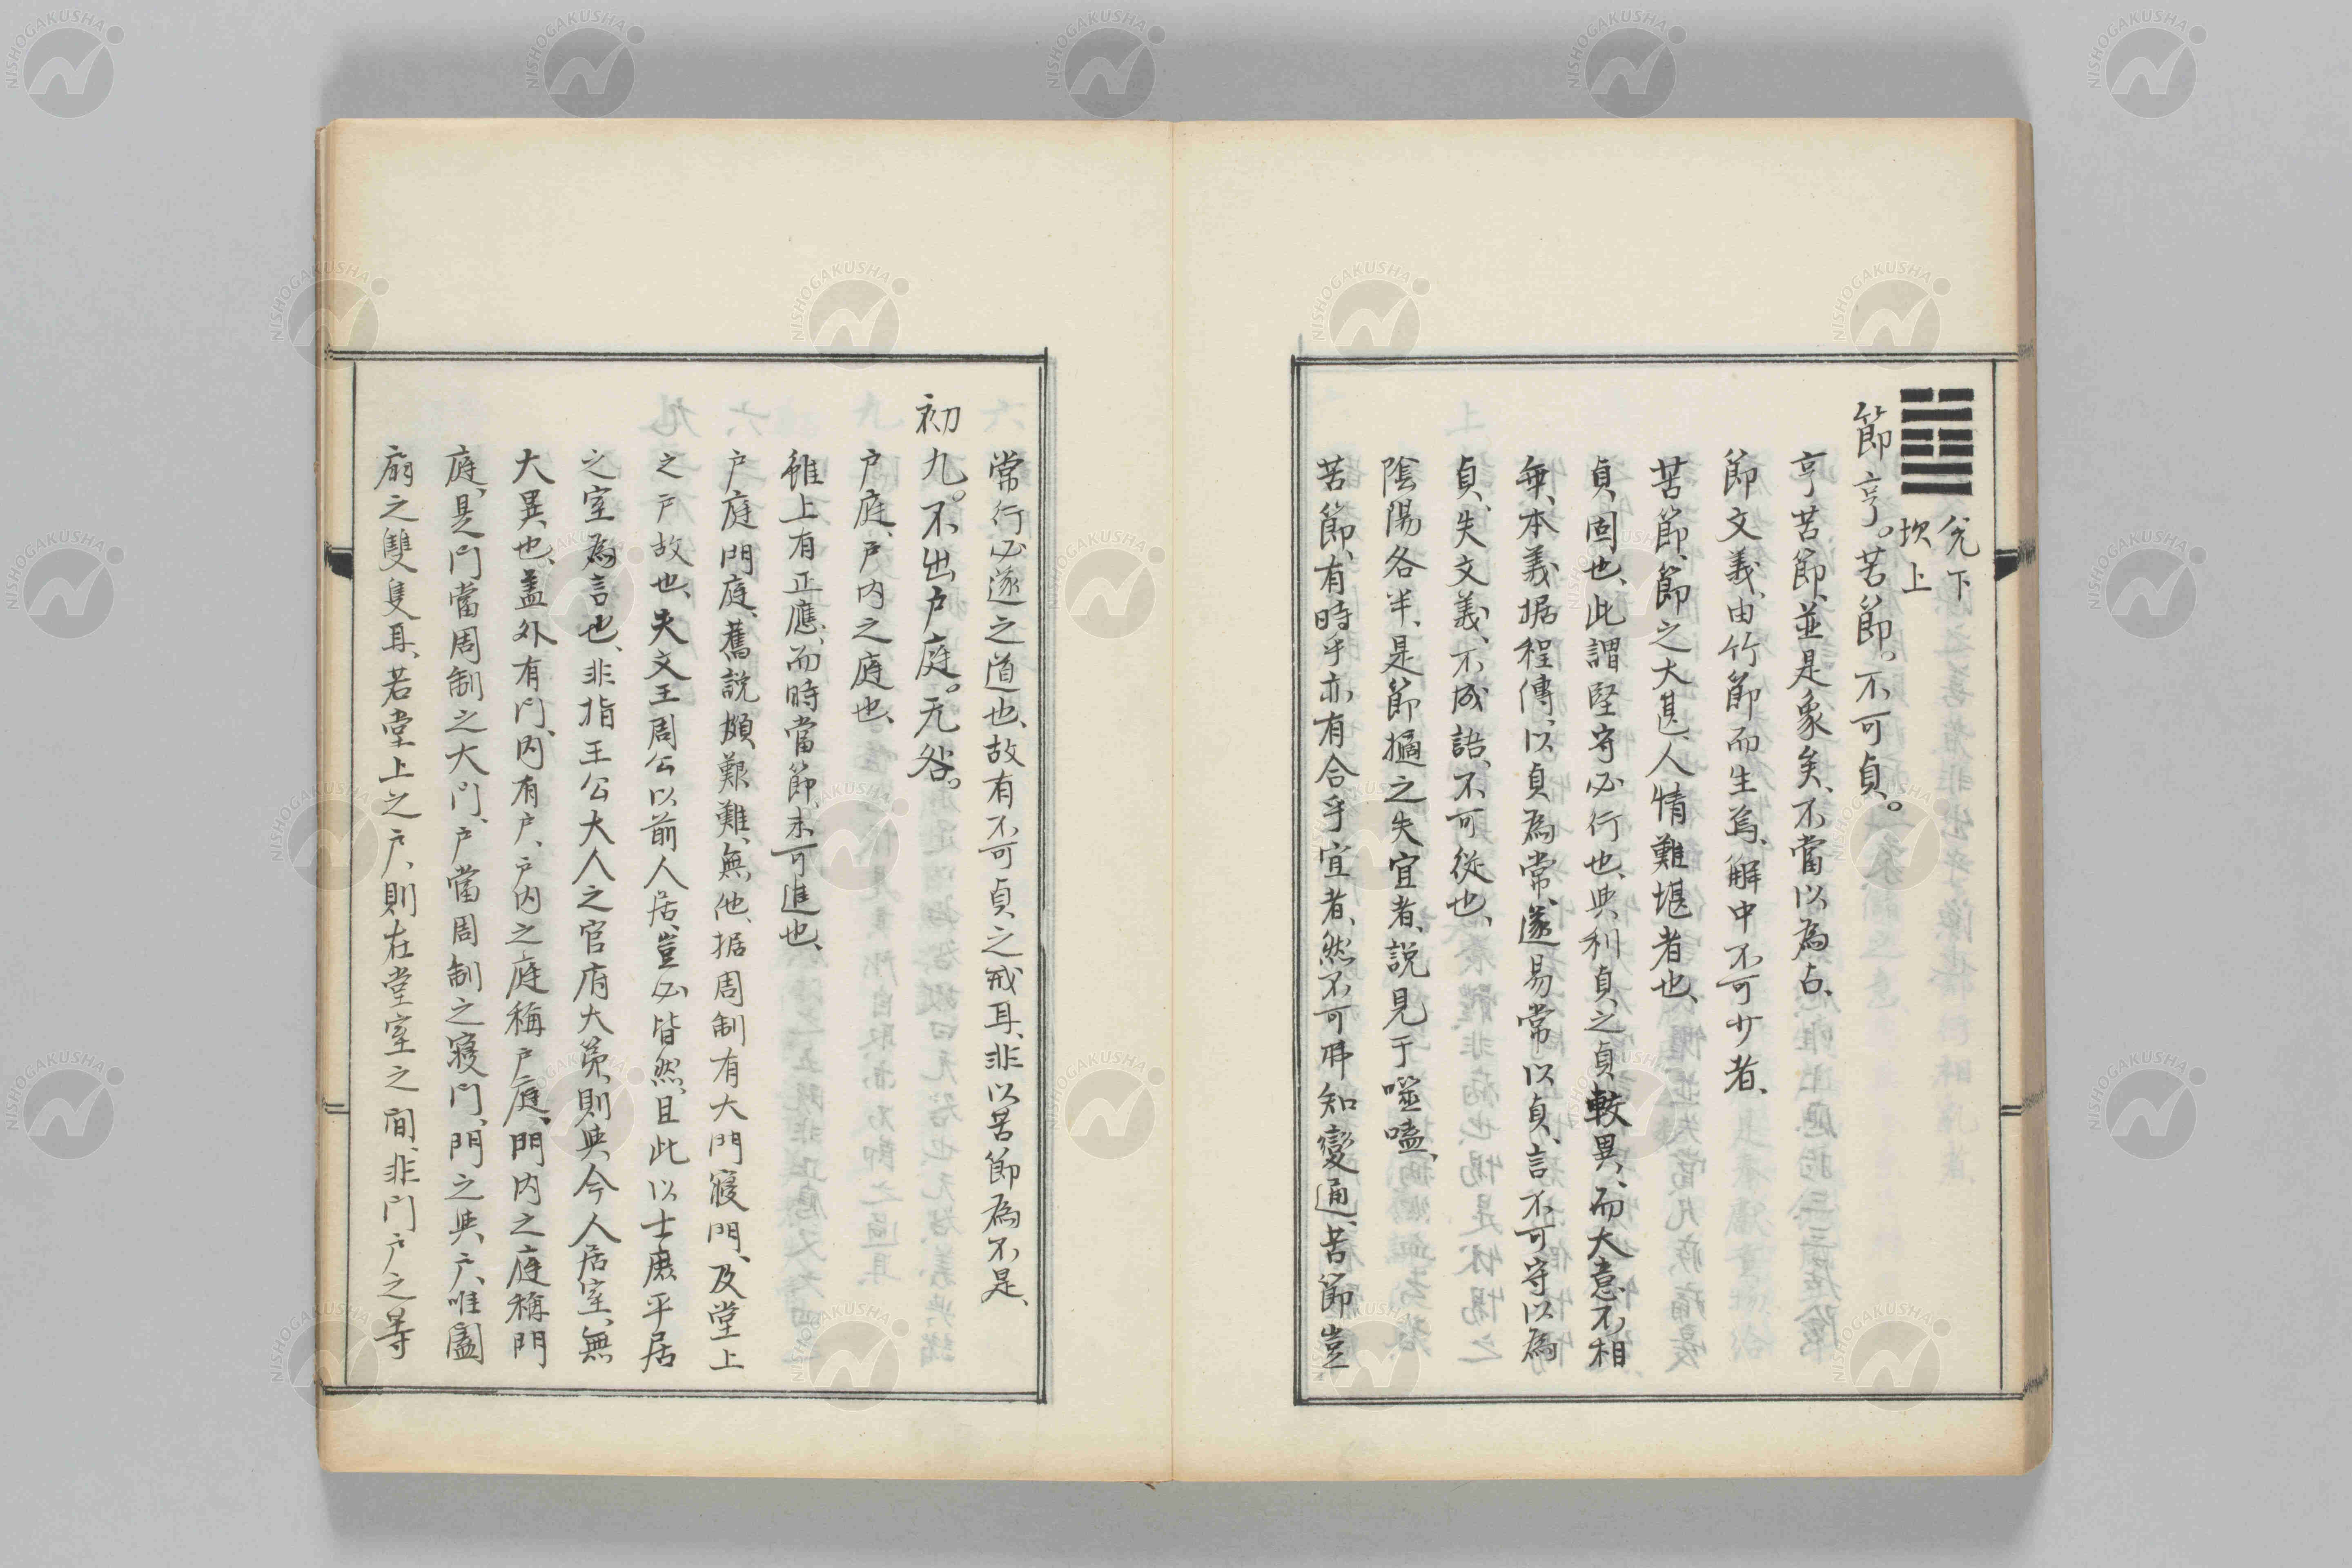 兌下
坎上
節亨。苦節。不可貞。
亨苦節、並是象矣、不當以為占、
節文義、由竹節而生焉、解中不可少者、
苦節、節之大甚、人情難堪者也、
貞、固也、此謂堅守必行也、與利貞之貞較異、而大意不相
乖、本義据程傳、以貞為常、遂易常以貞、言不可守以為
貞、失文義、不成語、不可從也、
陰陽各半、是節摘之失宜者、說見于噬嗑、
苦節、有時乎亦有合乎宜者、然不可弗知變通、苦節豈
常行必遂之道也、故有不可貞之戒耳、非以苦節為不是、
初九。不出戶庭。无咎。
戶庭、戶內之庭也、
雖上有正應、而時當節、未可進也、
戶庭門庭、舊說頗艱難、無他、据周制有大門寢門、及堂上
之戶故也、夫文王周公以前人居、豈必皆然、且此以士庶平居
之室為言也、非指王公大人之官府大第、則與今人居室、無
大異也、蓋外有門、內有戶、戶內之庭稱戶庭、門內之庭稱門
庭、是門當周制之大門、戶當周制之寢門、門之與戶、唯闔
扇之雙隻耳、若堂上之戶、則在堂室之間、非門戶之等
NISHOGAKUSHA